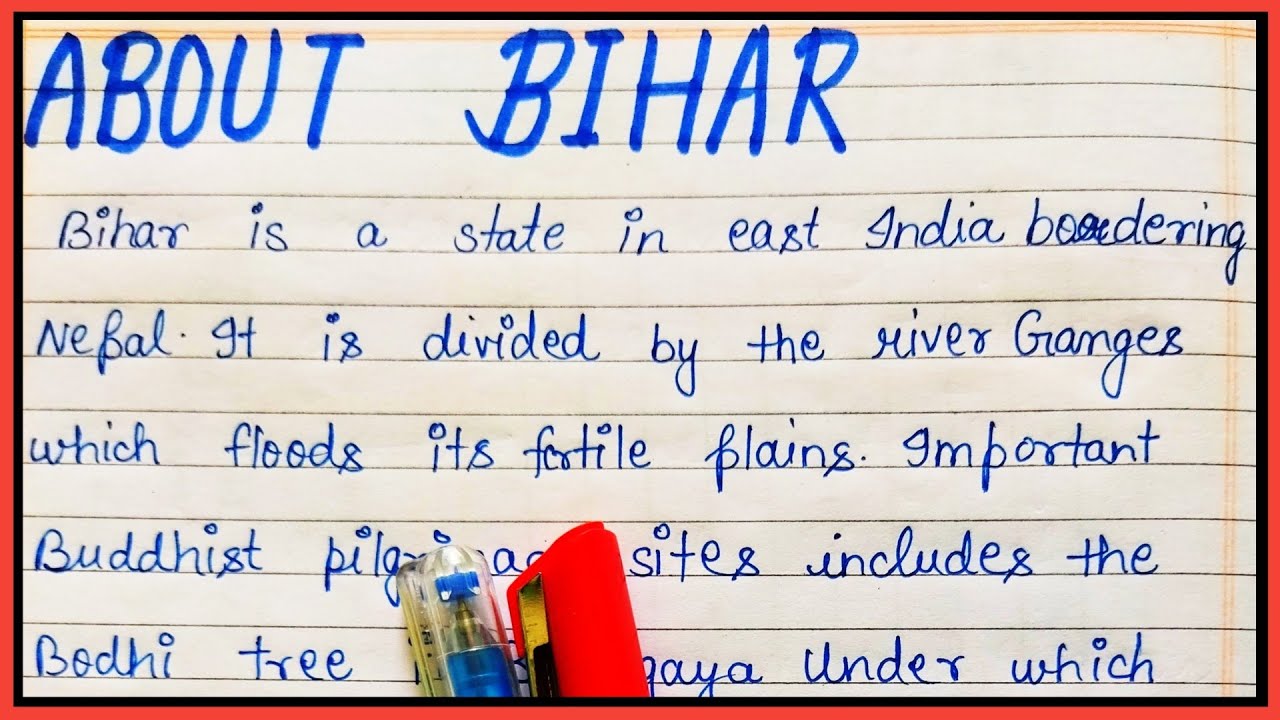 ABOUT BIHAR
Bihar is a state in east India bordering
Nepal. It is divided by the river Ganges
which floods its fertile plains. Important
Buddhist sites includes the
Bodhi tree under which